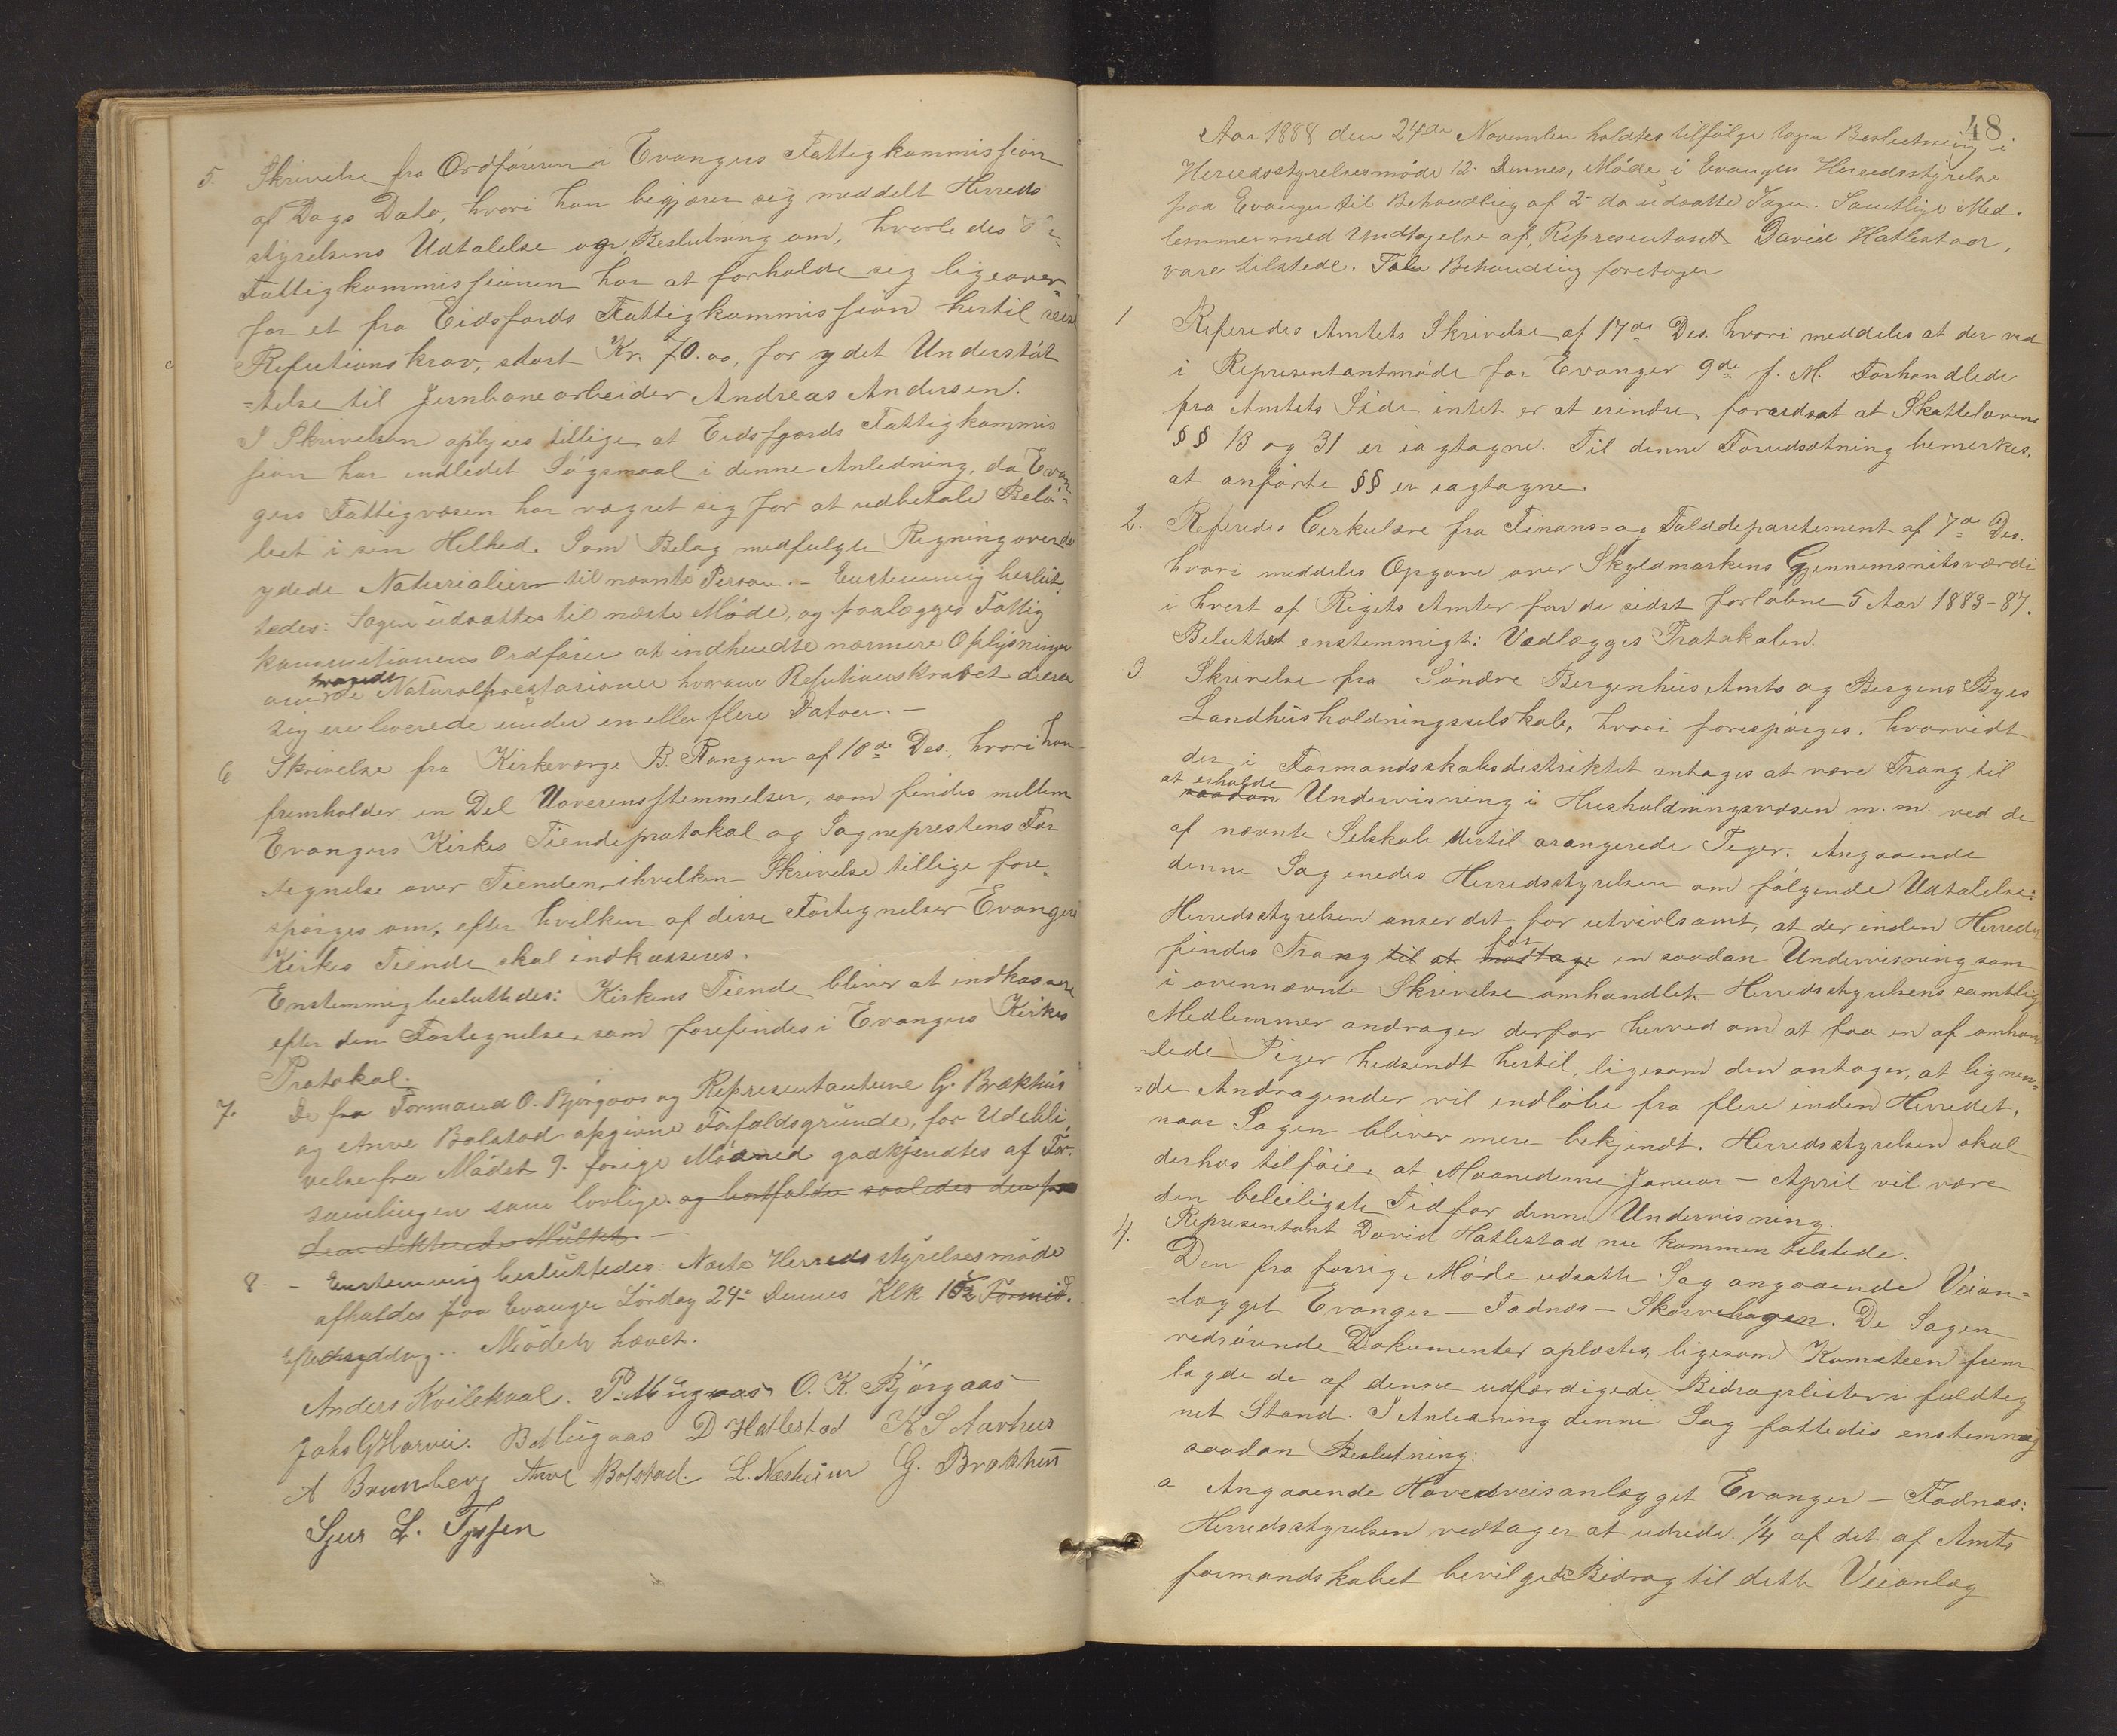 5. Skrivelse fra Ordføreren i Evangers Fattigkommission
af Dags Dato, hvori han begjærer sig meddelt Herreds
styrelsens Udtalelse og Beslutning om, hvorledes
Fattigkommissionen har at forholde sig ligeover-
for et fra Eidsfjords Fattigkommission hertil reist
Refutionskrav, stort Kr. 70.00, for ydet Understøt
=telse til Jernbanearbeider Andreas Andersen.
I Skrivelsen oplyses tillige at Eidsfjords Fattigkommis
sion har indledet Søgsmaal i denne Anledning, da Evan-
gers Fattigvæsen har vægret sig for at udbetale Belø-
bet i sin Helhed. Som Belag medfulgte Regning over de
ydede Naturialier til nævnte Person. - Enstemmig beslut-
tedes: Sagen udsattes til næste Møde, og paalægges Fattig
kommissionens Ordfører at indhendte nærmere Oplysninger
om de Naturalpræstasioner hvorom Refutionskravet dreier
sig ere leverede under en eller flere Datoer. -
6 Skrivelse fra Kirkeværge B. Rongen af 10de Ds. hvori han
fremholder en Del Uoverensstemmelser, som findes mellem
Evangers Kirkes Tiendeprotokol og Sogneprestens For
=tegnelse over Tienden, ihvilken Skrivelse tillige fore-
spørges om, efter hvilken af disse Fortegnelser Evangers
Kirkes Tiende skal indkasseres.
Enstemmig besluttedes: Kirkens Tiende bliver at indkassere
efter den Fortegnelse, som forefindes i Evangers Kirkes
Protokol.
7. De fra Formand O. Bjørgaas og Representanterne G. Brækhus
og Anve Bolstad opgivne Forfaldsgrunde, for Udebli-
velse fra Mødet 9. forige Maaned godkjendtes af For-
samlingen som lovlige. og bortfalder saaledes den fra
dem dikterede Mulkt. -
8. - Enstemmig besluttedes: Næste Herredsstyrelsesmøde
afholdes paa Evanger Lørdag 24de Dennes Klk Formid.
Eftermiddag. Mødet hævet.
Anders Kvilekval. P. Mugaas O. K. Bjørgaas
Johs G Horvei. B Mugaas D Hatlestad K S Aarhus
A Brunborg Anve Bolstad. L. Næsheim G. Brækhus
Sjur L. Tyssen
48
Aar 1888 den 24de November holdtes tilfølge tagen Beslutning i
Herredsstyrelsesmøde 12. Dennes, Møde i Evangers Herredsstyrelse
paa Evanger til Behandling af 2 da udsatte Sager. Samtlige Med-
lemmer med Undtagelse af, Representant David Hatlestad,
vare tilstede. Behandling foretoges
1 Referedes Amtets Skrivelse af 17de Ds. hvori meddeles at der ved
i Representantmøde for Evanger 9de f. M. Forhandlede
fra Amtets Side intet er at erindre, forudsat at Skattelovens
§§ 13 og 31 er iagtagne. Til denne Forudsætning bemerkes,
at anførte §§ er iagtagne.
2. Referedes Cirkulære fra Finans= og Tolddepartement af 7de Ds.
hvori meddeles Opgave over Skyldmarkens Gjennemsnitsværdi
i hvert af Rigets Amter for de sidst forløbne 5 Aar 1883-87.
Beluttet enstemmigt: Vedlægges Protokolen.
3. Skrivelse fra Søndre Bergenhus Amts og Bergens Byes
Landhusholdningsselskab, hvori forespørges, hvorvidt
der i Formandsskabsdistriktet antages at være Trang til
at erholde
saadan Undervisning i Husholdningsvæsen m. m. ved de
af nævnte Selskab dertil arangerede Piger. Angaaende
denne Sag enedes Herredsstyrelsen om følgende Udtalelse:
Herredsstyrelsen anser det for utvivlsomt, at der inden Herredet
for
findes Trang til at modtage en saadan Undervisning som
i ovennævnte Skrivelse omhandlet. Herredsstyrelsens samtlige
Medlemmer andrager derfor herved om at faa en af omhand
=lede Piger hedsendt hertil, ligesom den antager, at lignen=
=de Andragender vil indløbe fra flere inden Herredet,
naar Sagen bliver mere bekjendt. Herredsstyrelsen skal
derhos tilføie, at Maanederne Januar - April vil være
den beleiligste Tid for denne Undervisning.
4. Representant David Hatlestad nu kommen tilstede.
Den fra forrige Møde udsatte Sag angaaende Veian=
=lægget Evanger - Fadnæs - Skorvehagen. De Sagen
vedrørende Dokumenter oplæstes, ligesom Komiteen frem
lagde de af denne udfærdigede Bidragslister i fuldteg
net Stand. I Anledning denne Sag fattedes enstemmig
saadan Beslutning:
a Angaaende Hovedveisanlægget Evanger - Fadnæs:
Herredsstyrelsen vedtager at udrede 1/4 af det af Amts
formandskabet bevilgede Bidrag til dette Veianlæg